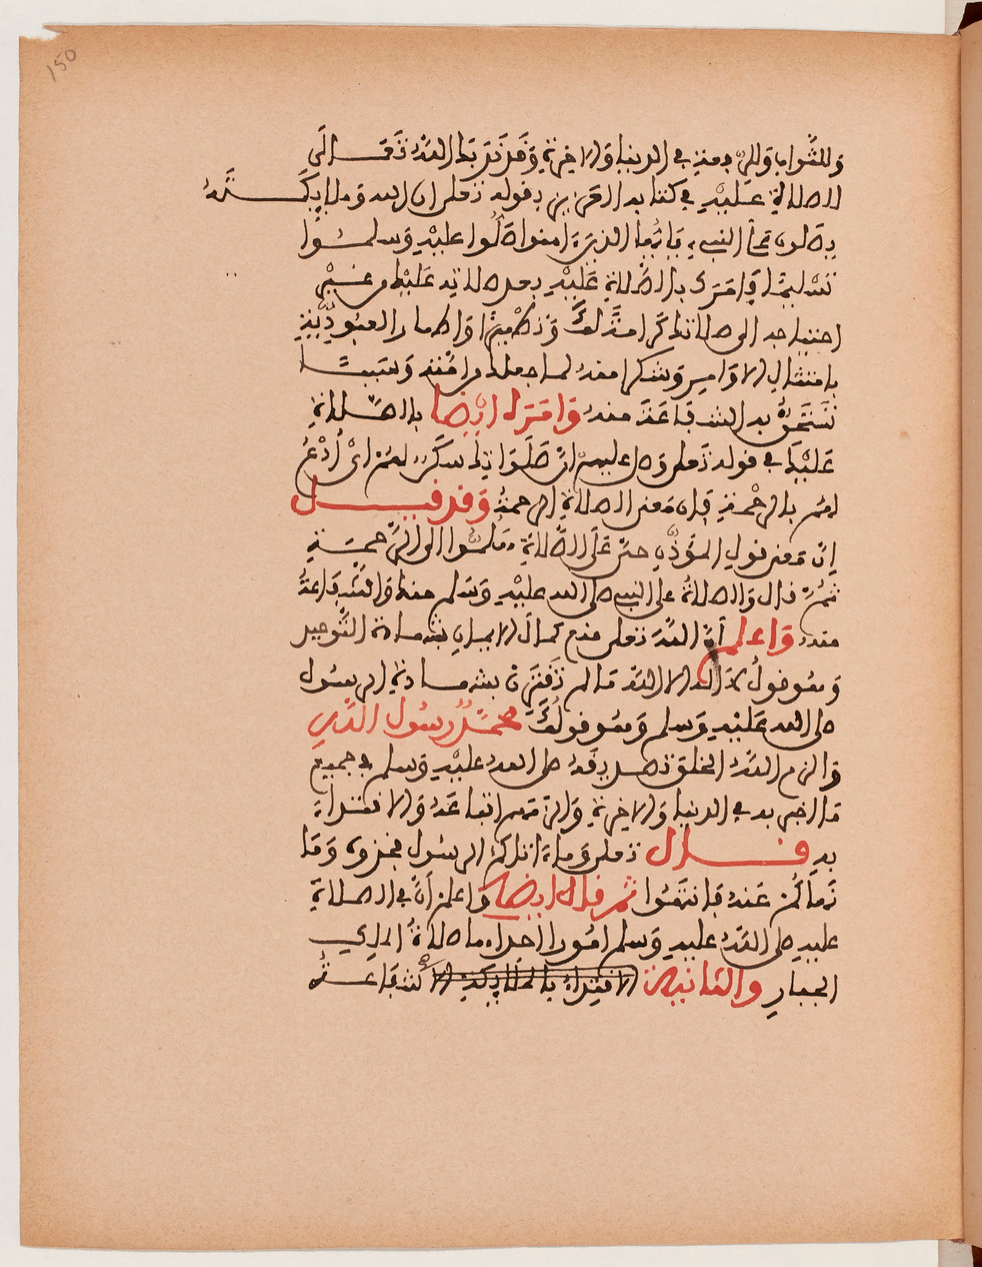 150
وللثواب وللرفعة في الدنيا والاخرة وقد نزّل الله تعالى
الصلاة عليه في كتابه العزيز بقوله تعلى ان الله وملايكته
يصلون على النبيء يايها الذين ءامنوا صلوا عليه وسلموا
تسليما فامرك بالصلاة عليه بعد صلاته عليه من غير
احتياجه الى صلاتك اكراما لك وتطهيرا واظهار العبودية
بامتثال الاوامر وشكرا منه لما جعله من امته وسببا
تستحق به الشفاعة منه وامره ايضا بالصلاة
عليك في قوله تعلى وصل عليهم ان صلواتك سكن لهم اي ادع
لهم بالرحمة فان معنى الصلاة الرحمة وقد قيل
ان معنى قول المؤذن حي على الصلاة هلموا الى الرحمة
ثم قال والصلاة على النبي صلى الله عليه وسلم منك والشفاعة
منه واعلم أن الله تعلى منع كمال الايمان بشهادة التوحيد
وهو قول لا اله الا الله ما لم تقترن بشهادة الرسول
صلى الله عليه وسلم وهو قولك محمد رسول الله
والزم الله الخلق تصديقه صلى الله عليه وسلم في جميع
ما اخبر به في الدنيا والاخرة والزمهم اتباعه والاقتداء
به فقال تعلى وما ءاتاكم الرسول فخذوه وما
نهاكم عنه فانتهوا ثم قال ايضا واعلم أن في الصلاة
عليه صلى الله عليه وسلم امورا احداها صلاة الملك
الجبار والثانية الاقتداء بالملايكة الا لشفاعته